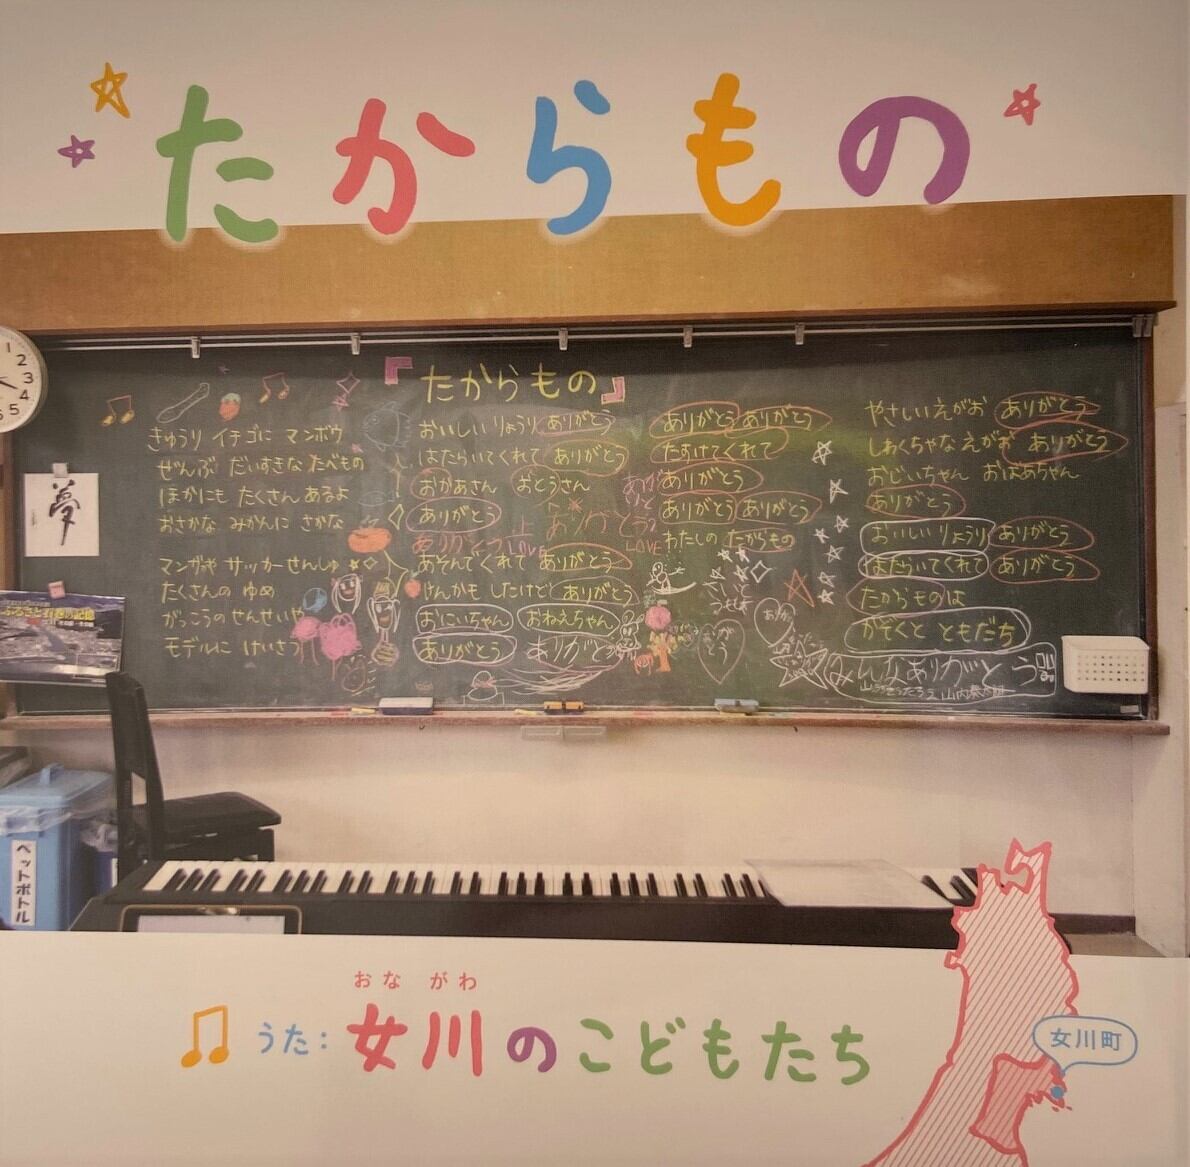 たからもの
1
2
3
4
5
6
夢
ふるさと石巻の記憶
『たからもの』
きゅうり イチゴに マンボウ
ぜんぶ だいすきな たべもの
ほかにも たくさん あるよ
おさかな みかんに さかな
マンガや サッカーせんしゅ
たくさんの ゆめ
がっこうの せんせいや
モデルに けいさつ
おいしい りょうり ありがとう
はたらいてくれて ありがとう
おかあさん おとうさん
ありがとう
ありがとう
LOVE
あそんでくれて ありがとう
けんかも したけど ありがとう
おにいちゃん おねえちゃん
ありがとう ありがとう
ありがとう ありがとう
たすけてくれて
ありがとう
ありがとう ありがとう
LOVE
わたしの たからもの
やさしい えがお ありがとう
しわくちゃな えがお ありがとう
おじいちゃん おばあちゃん
ありがとう
おいしい りょうり ありがとう
はたらいてくれて ありがとう
たからものは
かぞくと ともだち
みんなありがとう
ペットボトル
おながわ
うた：女川のこどもたち
女川町